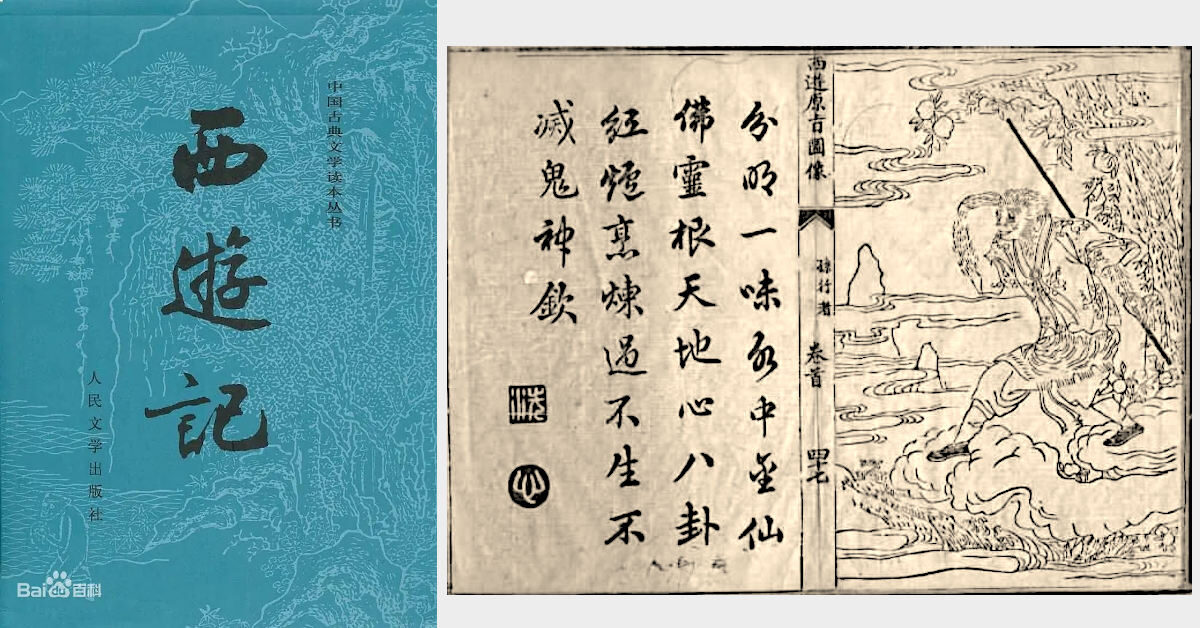 中国古典文学读本丛书
西遊記
人民文学出版社
Bai du 百科
西遊原旨圖像
孫行者
卷首
分明一味水中金仙
佛靈根天地心八卦
紅爐烹煉過不生不
滅鬼神欽